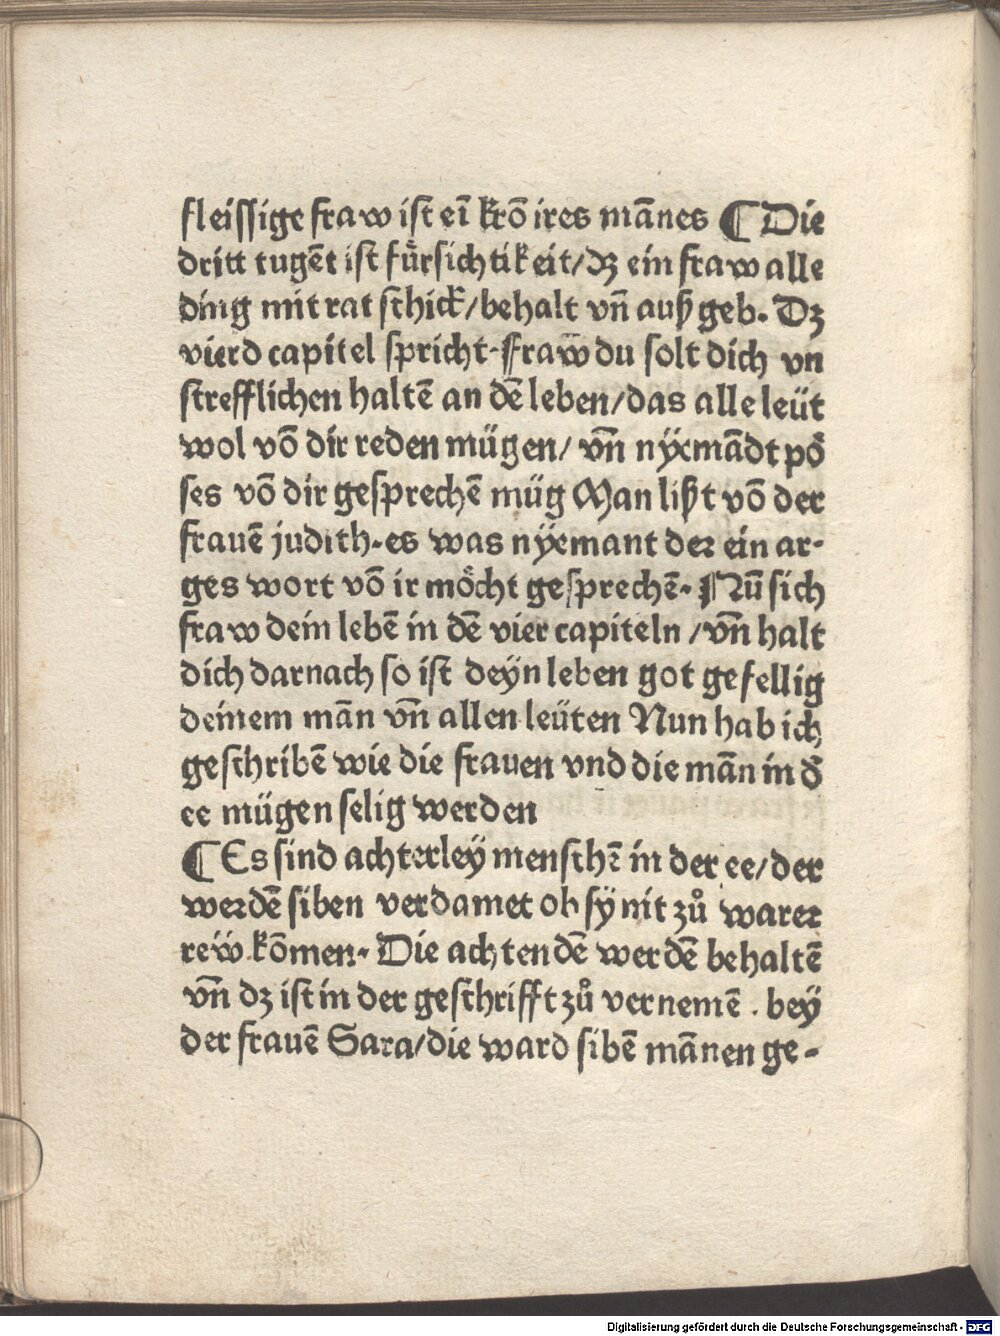 fleissige fraw ist eī krō ires mānes ¶ Die
dritt tugēt ist fürsichtikeit/dz ein fraw alle
ding mit rat schick/behalt vn̄ auß geb. Dz
vierd capitel spricht. Fraw du solt dich vn
strefflichen haltē an dē leben/das alle leüt
wol vō dir reden mügen/ vn̄ nyemādt pö
ses vō dir gesprechē müg Man lißt vō der
frauē judith. es was nyemant der ein ar-
ges wort vō ir möcht gesprechē. Nū sich
fraw dein lebē in dē vier capiteln /vn̄ halt
dich darnach so ist deyn leben got gefellig
deinem mān vn̄ allen leüten Nun hab ich
geschribē wie die frauen vnd die mān in d̄
ee mügen selig werden
¶ Es sind achterleÿ menschē in der ee/der
werdē siben verdamet ob sÿ nit zů warer
reẅ kōmen. Die achtendē werdē behaltē
vn̄ dz ist in der geschrifft zů vernemē . beÿ
der frauē Sara/die ward sibē mānen ge-
Digitalisierung gefördert durch die Deutsche Forschungsgemeinschaft - DFG